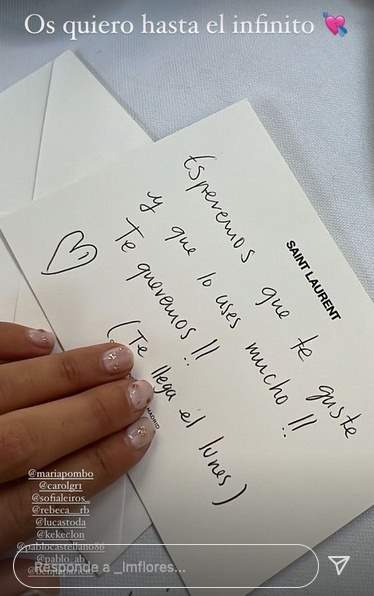 Os quiero hasta el infinito 💘
SAINT LAURENT
Esperemos que te guste
y que lo uses mucho!!
Te queremos!!
(Te llega el lunes)
MADRID
@mariapombo
@carolgr1
@sofialeiros_
@rebeca__rb
@lucastoda
@kekeclon
@pablocastellano86
@pablo_ab
Responde a _lmflores...